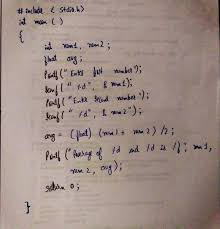 # include < stdio.h>
int main ( )
{
int num1, num2;
float avg;
Printf (" Enter first number");
Scanf (" %d", & num1);
Printf (" Enter second number");
Scanf (" %d", & num2");
avg = (float) (num1 + num2) /2;
Printf ("Average of %d and %d is %f", num1,
num2, avg);
return 0;
}